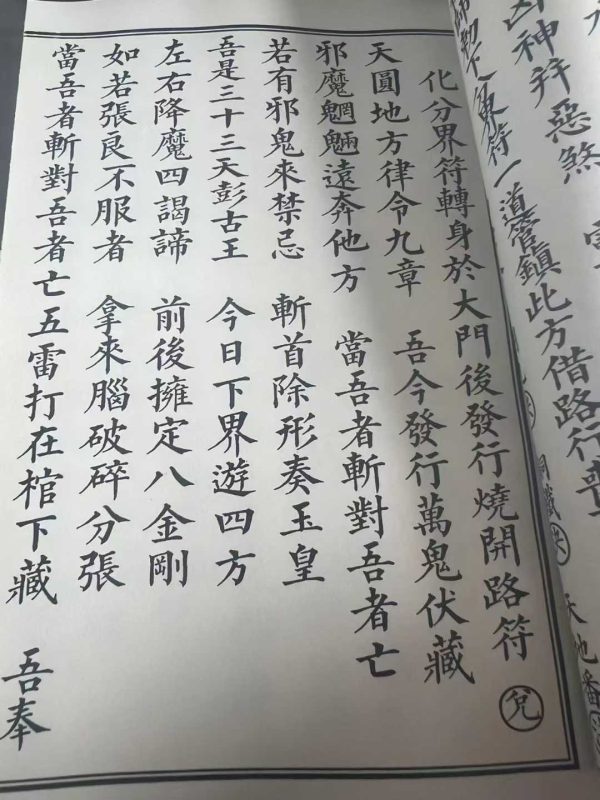 化分界符轉身於大門後發行燒開路符 兌
天圓地方律令九章 吾今發行萬鬼伏藏
邪魔魍魎遠奔他方 當吾者斬對吾者亡
若有邪鬼來禁忌 斬首除形奏玉皇
吾是三十三天彭古王 今日下界遊四方
左右降魔四謁諦 前後擁定八金剛
如若張良不服者 拿來腦破碎分張
當吾者斬對吾者亡五雷打在棺下藏 吾奉
凶神并惡煞
符一道管鎮此方借路行喪
天地番